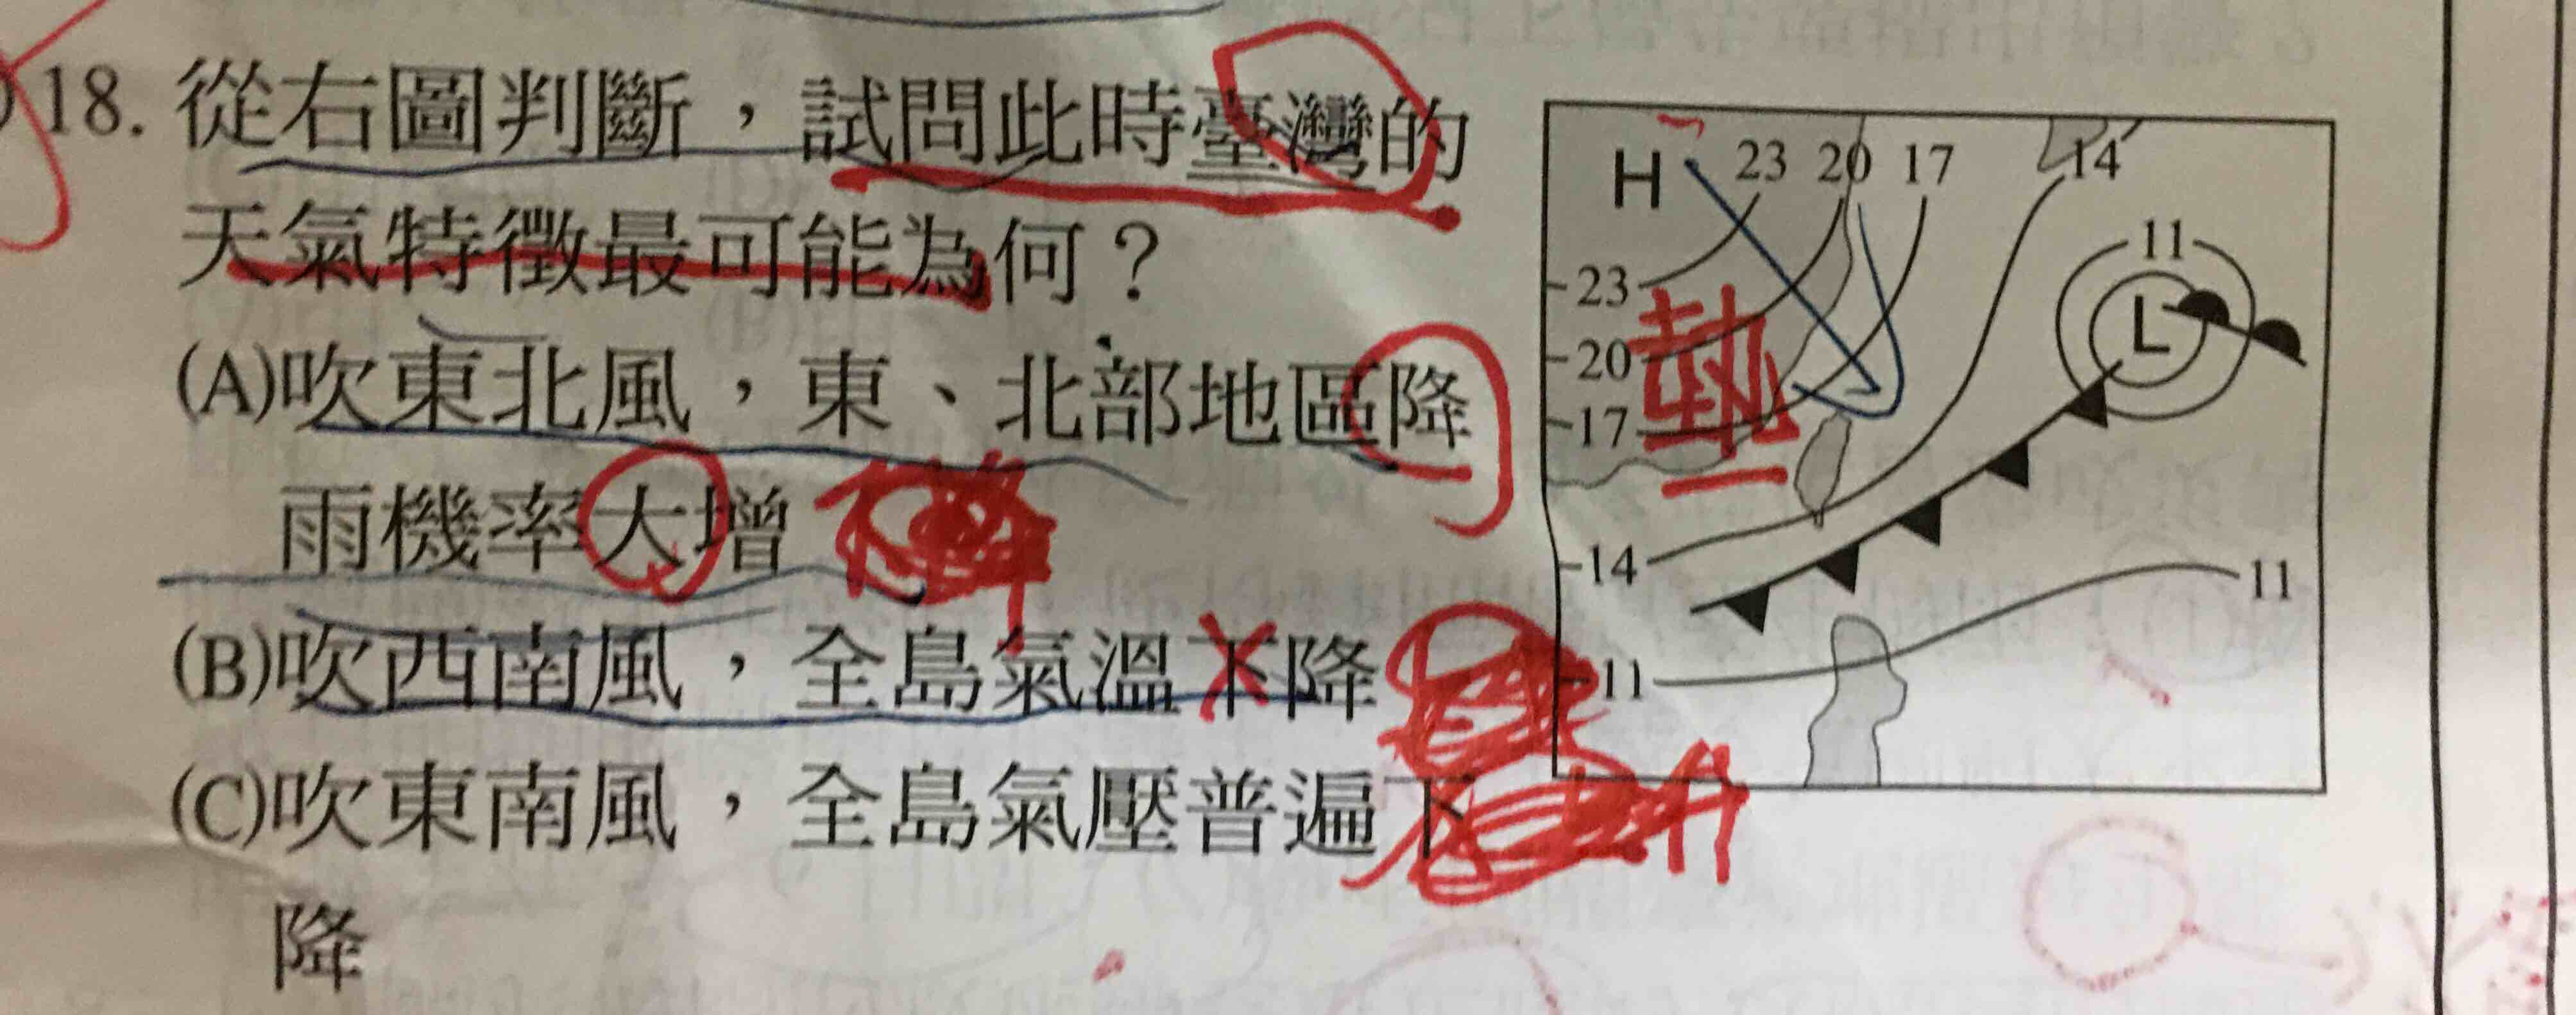 18. 從右圖判斷，試問此時臺灣的
天氣特徵最可能為何？
(A)吹東北風，東、北部地區降
雨機率大增
(B)吹西南風，全島氣溫下降
(C)吹東南風，全島氣壓普遍下
降
H 23 20 17 14
11
L
23
20
17
14
11
11